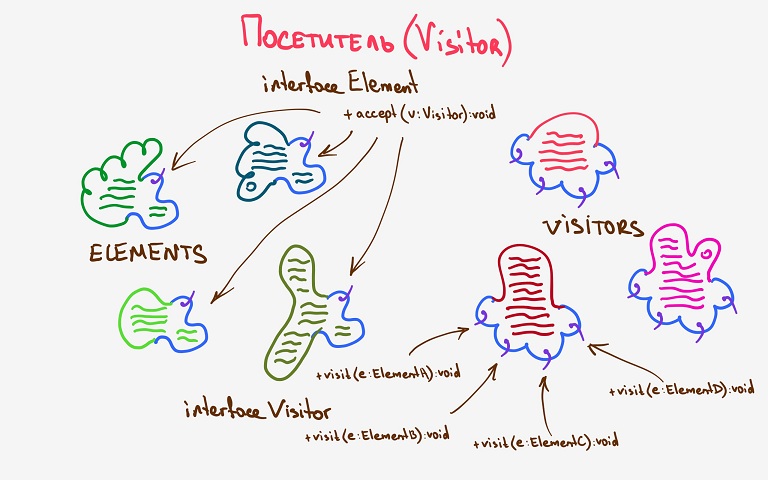 Посетитель (Visitor)
interface Element
+ accept (v: Visitor): void
ELEMENTS
VISITORS
+visit(e:ElementA):void
+visit(e:ElementD):void
interface Visitor
+visit(e:ElementB):void
+visit(e:ElementC):void